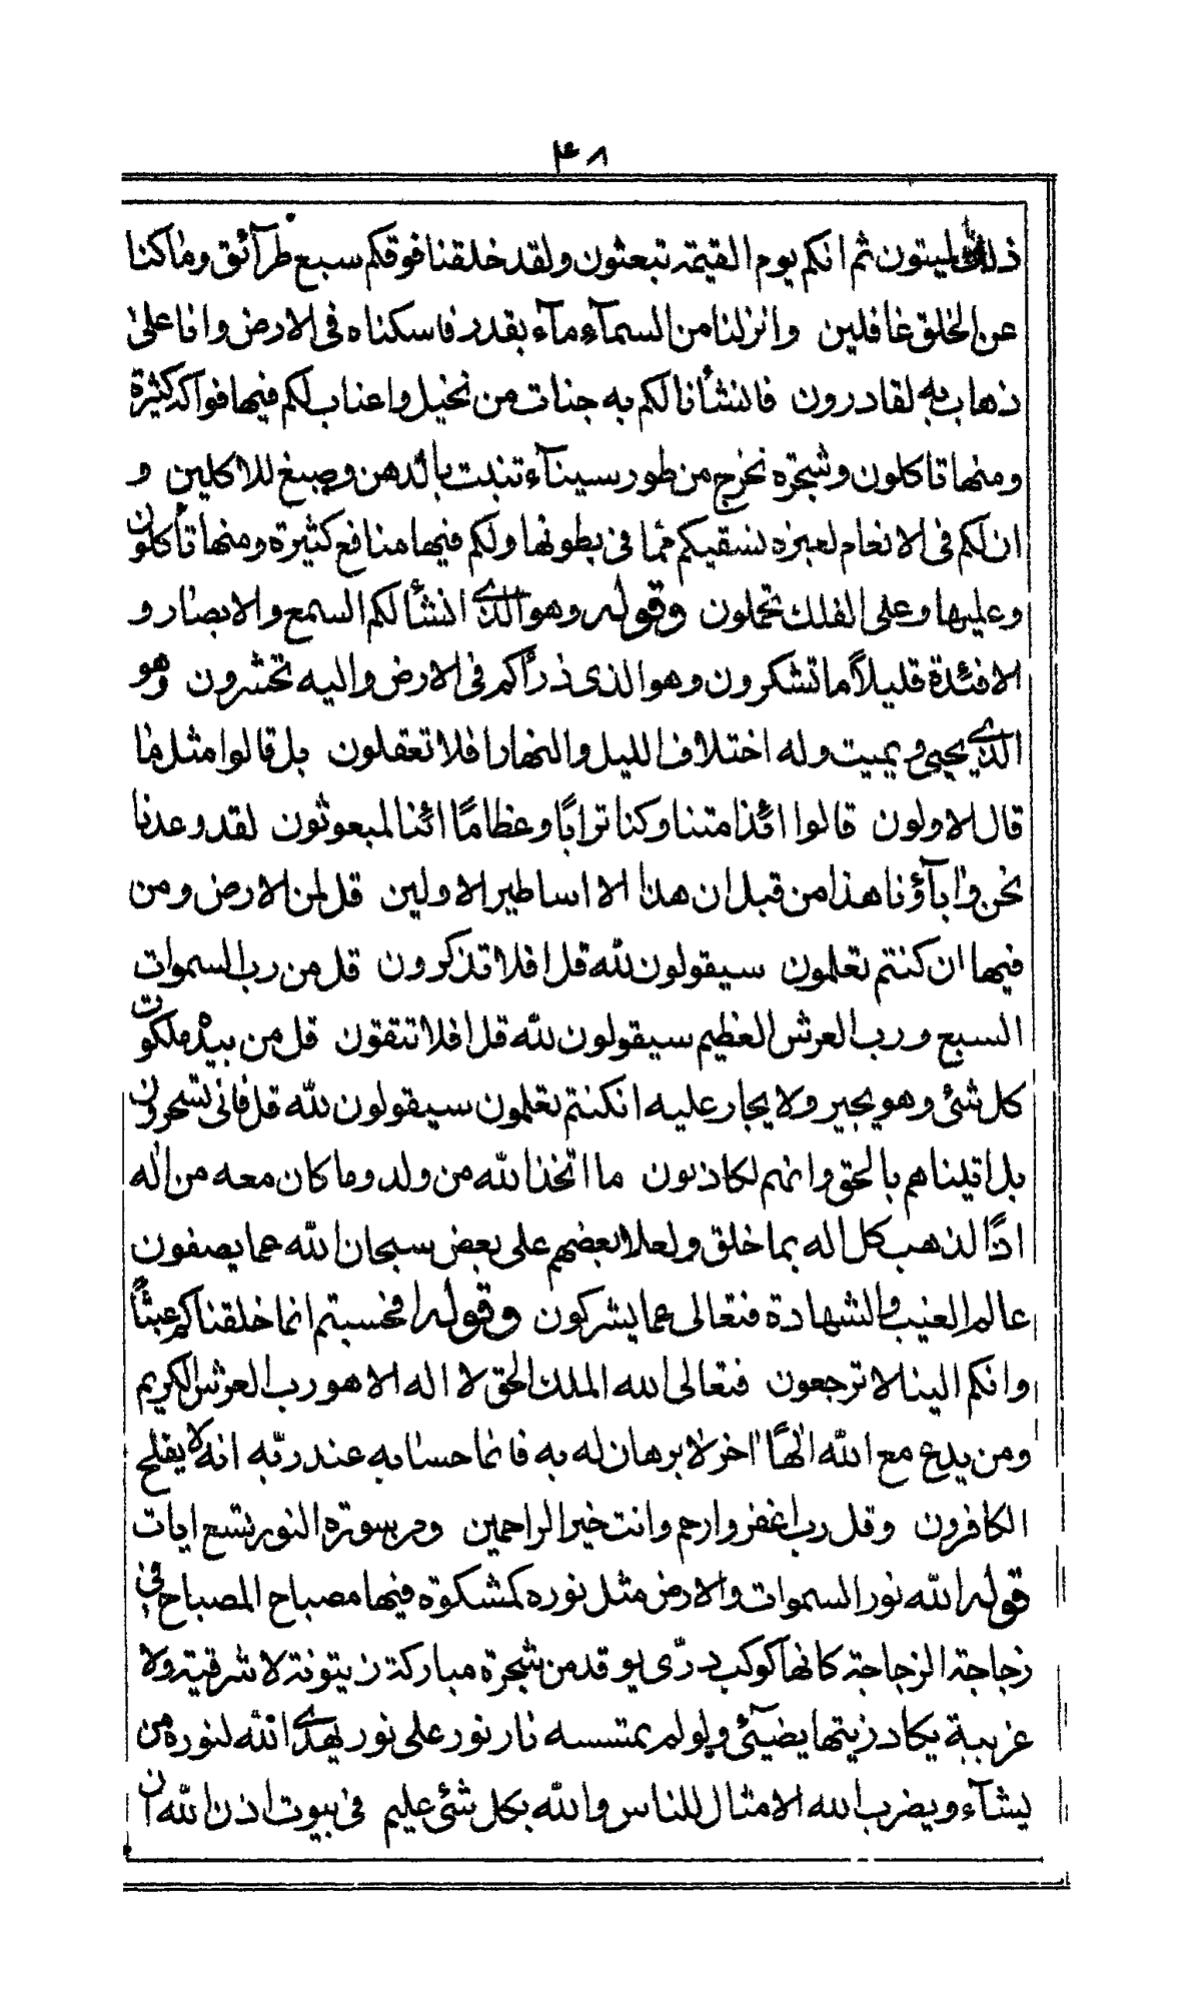 ٣٨
ذلك لميتون ثم انكم يوم القيمة تبعثون ولقد خلقنا فوقكم سبع طرآئق وما كنا
عن الخلق غافلين وانزلنا من السمآء مآء بقدر فاسكناه فى الارض وانا على
ذهاب به لقادرون فانشأنا لكم به جنات من نخيل واعناب لكم فيها فواكه كثيرة
ومنها تاكلون وشجرة تخرج من طور سيناء تنبت بالدهن وصبغ للاكلين و
ان لكم فى الانعام لعبرة نسقيكم مما فى بطونها ولكم فيها منافع كثيرة ومنها تأكلون
وعليها وعلى الفلك تحملون وقوله وهو الذى انشأ لكم السمع والابصار و
الافئدة قليلاً ما تشكرون وهو الذى ذرأكم فى الارض واليه تحشرون وهو
الذى يحيى ويميت وله اختلاف الليل والنهار افلا تعقلون بل قالوا مثل ما
قال الاولون قالوا ائذا متنا وكنا تراباً وعظاماً ائنا لمبعوثون لقد وعدنا
نحن وابآؤنا هذا من قبل ان هذا الا اساطير الاولين قل لمن الارض ومن
فيها ان كنتم تعلمون سيقولون لله قل افلا تذكرون قل من رب السموات
السبع ورب العرش العظيم سيقولون لله قل افلا تتقون قل من بيده ملكوت
كل شئ وهو يجير ولا يجار عليه ان كنتم تعلمون سيقولون لله قل فانى تسحرون
بل اتيناهم بالحق وانهم لكاذبون ما اتخذ الله من ولد وما كان معه من اله
اذاً لذهب كل اله بما خلق ولعلا بعضهم على بعض سبحان الله عما يصفون
عالم الغيب والشهادة فتعالى عما يشركون وقوله افحسبتم انما خلقناكم عبثاً
وانكم الينا لا ترجعون فتعالى الله الملك الحق لا اله الا هو رب العرش الكريم
ومن يدع مع الله الهاً اخر لا برهان له به فانما حسابه عند ربه انه لا يفلح
الكافرون وقل رب اغفر وارحم وانت خير الراحمين ومن سورة النور تسع ايات
قوله الله نور السموات والارض مثل نوره كمشكوة فيها مصباح المصباح فى
زجاجة الزجاجة كانها كوكب درّى يوقد من شجرة مباركة زيتونة لا شرقية ولا
غربية يكاد زيتها يضيئ ولو لم تمسسه نار نور على نور يهدى الله لنوره من
يشآء ويضرب الله الامثال للناس والله بكل شئ عليم فى بيوت اذن الله ان